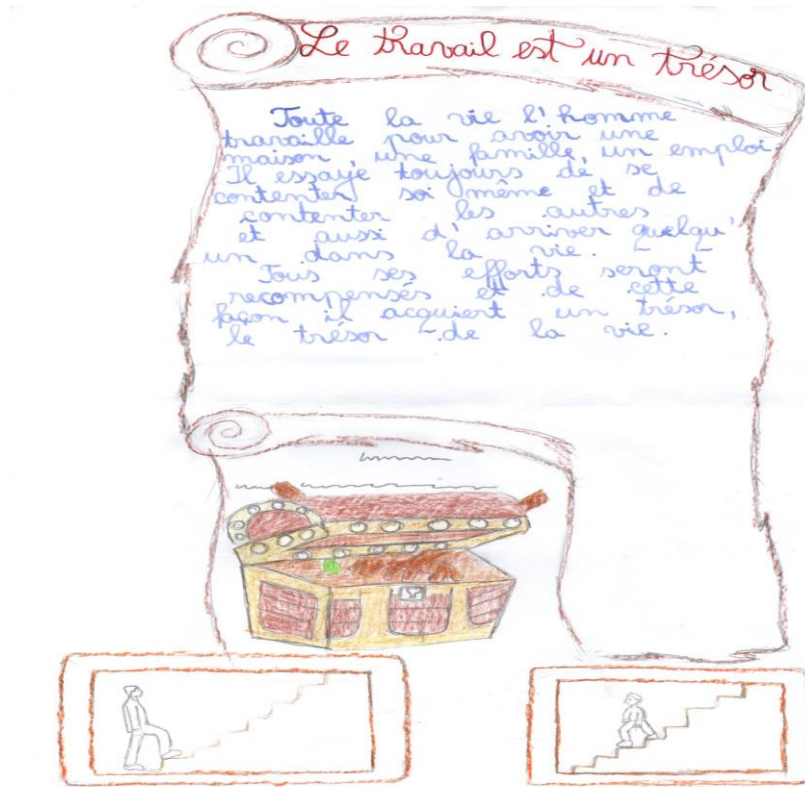 Le travail est un trésor
Toute la vie l'homme
travaille pour avoir une
maison, une famille, un emploi.
Il essaye toujours de se
contenter soi même et de
contenter les autres
et aussi d'arriver quelqu'
un dans la vie.
Tous ses efforts seront
recompensés et de cette
façon il acquiert un trésor,
le trésor de la vie.